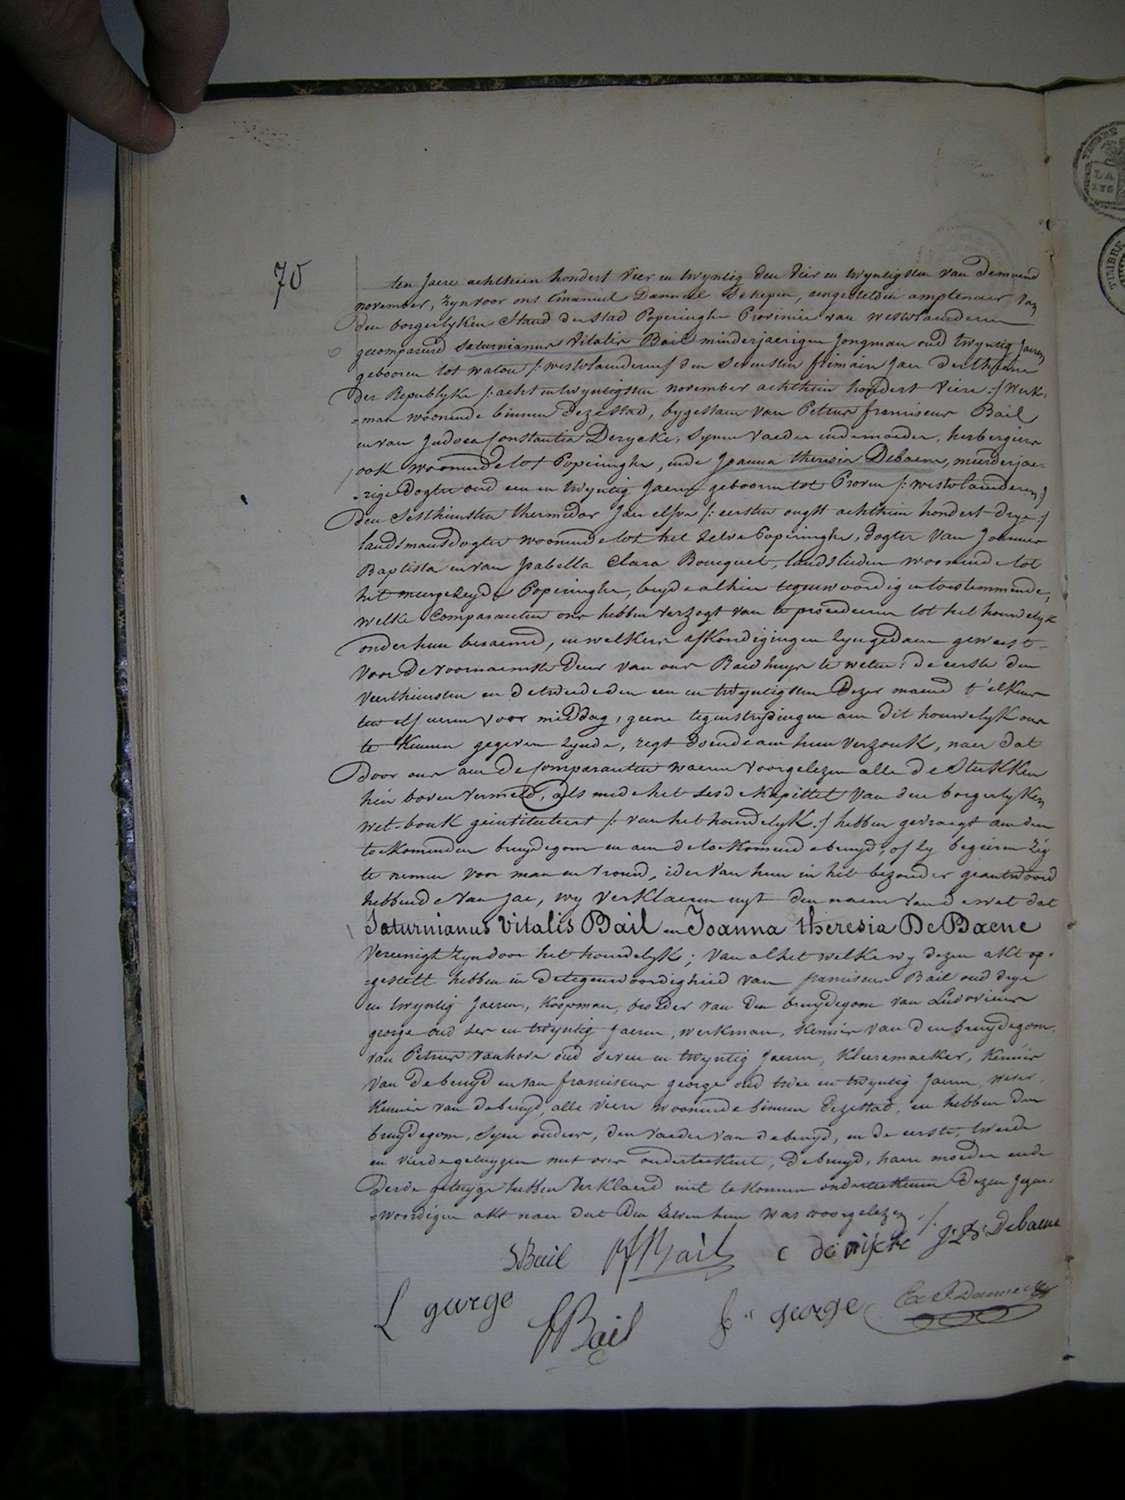 70
ten Jaere achthien hondert vier en twyntig den vier en twyntigsten van de maend
november, zyn voor ons Emanuel Danneel Schepen, aengestelden amptenaer van
den borgerlyken Stand der Stad Poperinghe Provincie van Westvlaenderen
gecompareerd Saturnianus Vitalis Bail minderjaerigen Jongman oud twyntig Jaeren
gebooren tot watou /: westvlaenderen :/ den sevensten frimaire Jaer derthiene
der Republyke /: acht en twyntigsten november achthien hondert viere :/ werk-
=man woonende binnen deze stad, bygestaen van Petrus franciscus Bail
en van Judoca Constantia Derycke, synen vaeder ende moeder, herbergiers
ook woonende tot Poperinghe, ende Joanna theresia Debaene, meerderjae-
=rige dogter oud een en twyntig Jaeren gebooren tot Proven /: westvlaenderen :/
den sesthiensten thermidor Jaer elfve /: eersten ougst achthien hondert drye :/
landsmansdogter woonende tot het zelve Poperinghe, dogter van Joannes
Baptista en van Isabella Clara Boucquet, landslieden woonende tot
het meergezeyde Poperinghe, beyde alhier tegenwoordig en toestemmende,
welke Comparanten ons hebben verzogt van te procedeeren tot het houwelyk
onder hun beraemd, en welkers afkondigingen zyn gedaen geweest
voor de voornaemste deur van ons Raedhuys te weten: de eerste den
veerthiensten en de tweede den een en twyntigsten dezer maend t'elkens
ten elf ueren voor middag, geene tegenstrydingen aen dit houwelyk ons
te kennen gegeven zynde, regt doende aen hun verzoek, naer dat
door ons aen de Comparanten waeren voorgelezen alle de stukken
hier boven vermeld, als mede het sesde kapittel van den borgerlyken
wet-bouk geintituleert /: van het houwelyk :/ hebben gevraegt aen den
toekomenden bruydegom en aen de toekomende bruyd, of zy begeiren zig
te nemen voor man en vrouw, ider van hun in het bezonder geantwoord
hebbende van Jae, wy verklaeren uyt den naem van de wet dat
Saturnianus Vitalis Bail en Joanna theresia De Baene
vereenigt zyn door het houwelyk; van al het welke wy dezen akt op-
=gestelt hebben in de tegenwoordigheid van franciscus Bail oud drye
en twyntig Jaeren, koopman, broeder van den bruydegom van Ludovicus
george oud ses en twyntig Jaeren, werkman, kennis van den bruydegom,
van Petrus vanhove oud seven en twyntig Jaeren, kleermaeker, kennis
van de bruyd en van franciscus george oud twee en twyntig Jaeren, wever,
kennis van de bruyd, alle viere woonende binnen deze stad, en hebben den
bruydegom, syne ouders, den vaeder van de bruyd, en de eerste, tweede
en vierde getuygen met ons onderteekent, de bruyd, haere moeder ende
derde getuyge hebben verklaerd niet te konnen onderteekenen dezen Jegen-
=woordigen akt naer dat den zelven hun was voorgelezen ./.
S Bail PF Bail C de rijcke J: B: Debaene
L george F Bail f: george Em J Danneel